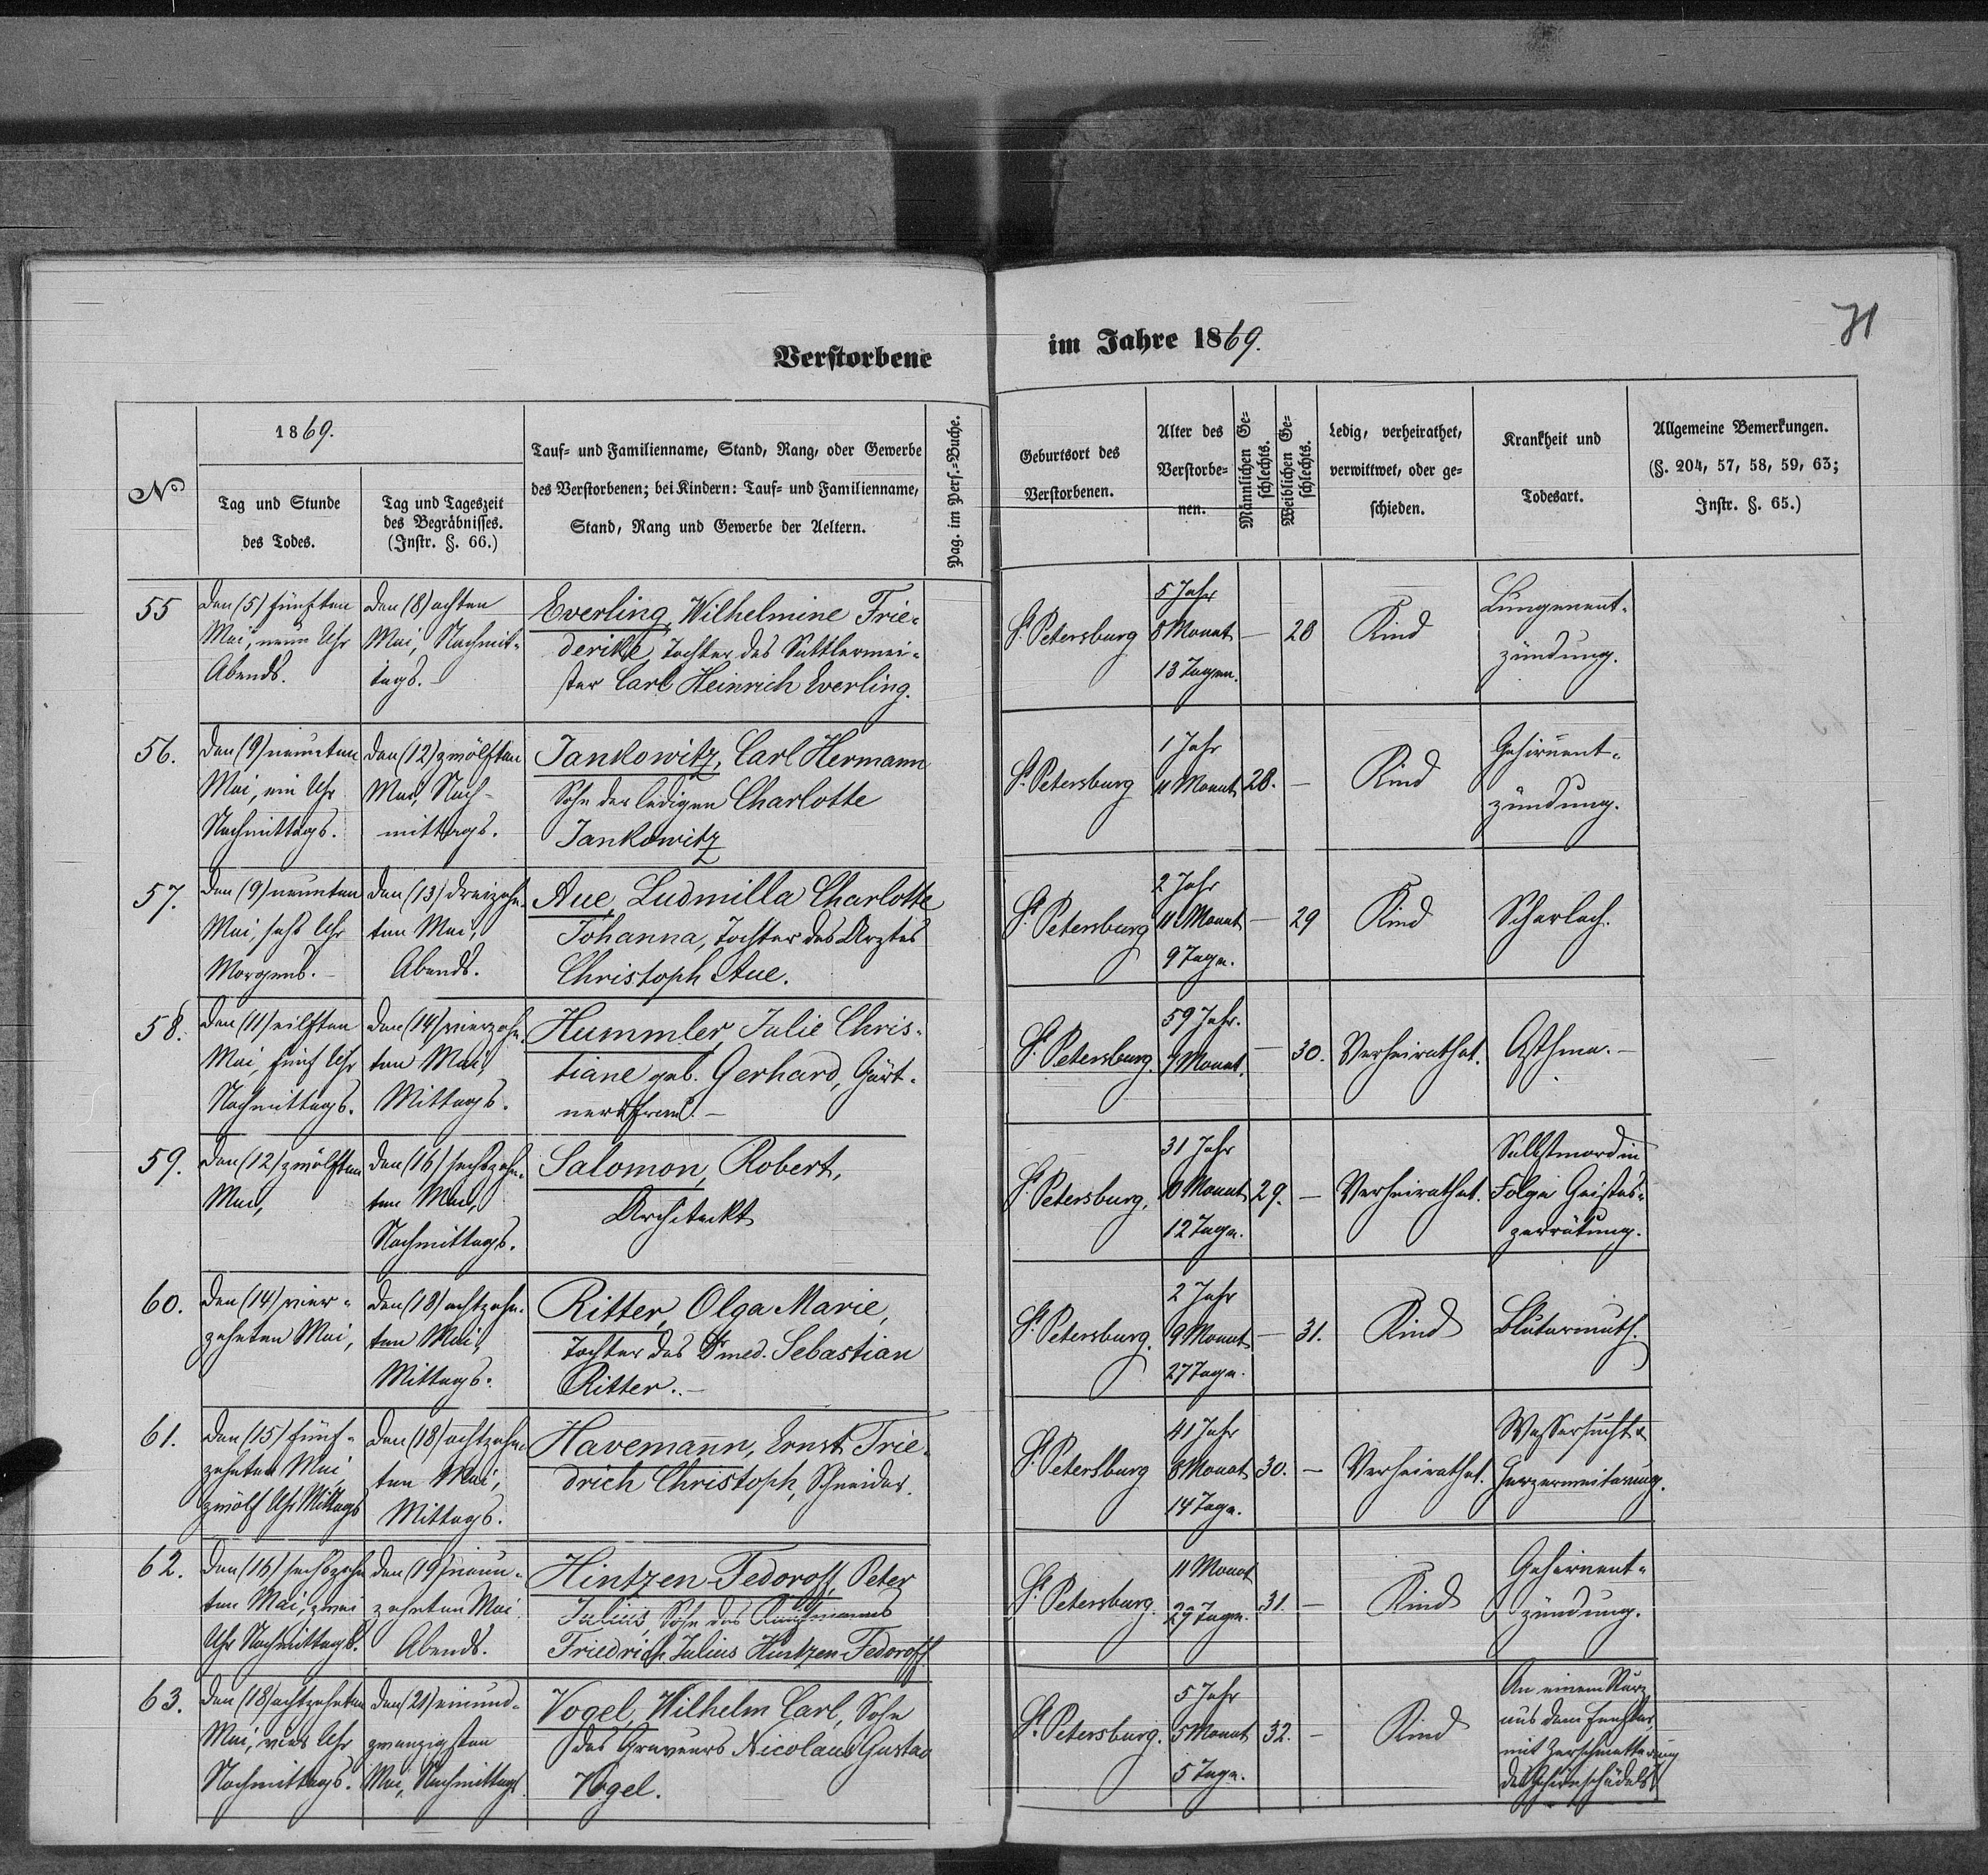 Verstorbene
im Jahre 1869.
71
№
1869.
Tag und Stunde
des Todes.
Tag und Tageszeit
des Begräbnisses.
(Instr. §. 66.)
Tauf- und Familienname, Stand, Rang, oder Gewerbe
des Verstorbenen; bei Kindern: Tauf- und Familienname,
Stand, Rang und Gewerbe der Aeltern.
Pag. im Pers.-Buche.
Geburtsort des
Verstorbenen.
Alter des
Verstorbe-
nen.
Männlichen Ge-
schlechts.
Weiblichen Ge-
schlechts.
Ledig, verheirathet,
verwittwet, oder ge-
schieden.
Krankheit und
Todesart.
Allgemeine Bemerkungen.
(§. 204, 57, 58, 59, 63;
Instr. §. 65.)
55
Den (5) fünften
Mai, neun Uhr
Abends.
Den (8) achten
Mai, Nachmit-
tags.
Everling, Wilhelmine Frie-
derike, Tochter des Sattlermei-
ster Carl Heinrich Everling.
St. Petersburg
5 Jahr
8 Monat
13 Tagen.
—
28
Kind
Lungenent-
zündung.
56.
Den (9) neunten
Mai, ein Uhr
Nachmittags.
Den (12) zwölften
Mai, Nach-
mittags.
Jankowitz, Carl Hermann
Sohn der ledigen Charlotte
Jankowitz
St. Petersburg
1 Jahr
11 Monat
28.
—
Kind
Gehirnent-
zündung.
57.
Den (9) neunten
Mai, sechs Uhr
Morgens.
Den (13) dreizehn-
ten Mai,
Abends.
Aue, Ludmilla Charlotte
Johanna, Tochter des Arztes
Christoph Aue.
St. Petersburg
2 Jahr
11 Monat
9 Tage.
—
29
Kind
Scharlach.
58.
Den (11) eilften
Mai, fünf Uhr
Nachmittags.
Den (14) vierzehn-
ten Mai,
Mittags.
Hummler, Julie Chris-
tiane geb. Gerhard, Gärt-
nersfrau. —
St. Petersburg.
59 Jahr.
7 Monat.
—
30.
Verheirathet.
Asthma. —
59.
Den (12) zwölften
Mai,
Den (16) sechszehn-
ten Mai,
Nachmittags.
Salomon, Robert,
Architekt
St. Petersburg.
31 Jahr
10 Monat
12 Tage.
29.
—
Verheirathet.
Selbstmord in
Folge Geistes-
zerrütung.
60.
Den (14) vier-
zehnten Mai,
Den (18) achtzehn-
ten Mai,
Mittags.
Ritter, Olga Marie,
Tochter des Dr med. Sebastian
Ritter. —
St. Petersburg.
2 Jahr
9 Monat
27 Tage.
—
31.
Kind
Blutarmuth.
61.
Den (15) fünf-
zehnten Mai
zwölf Uhr Mittags
Den (18) achtzehn-
ten Mai,
Mittags.
Havemann, Ernst Frie-
drich Christoph, Schneider.
St. Petersburg
41 Jahr
8 Monat
14 Tage.
30.
—
Verheirathet.
Wassersucht &
Herzerweiterung.
62.
Den (16) sechszehn
ten Mai, zwei
Uhr Nachmittags.
Den (19) neun-
zehnten Mai
Abends.
Hintzen-Fedoroff, Peter
Julius, Sohn des Kaufmannes
Friedrich Julius Hintzen-Fedoroff
St. Petersburg.
11 Monat
29 Tage.
31.
—
Kind
Gehirnent-
zündung.
63.
Den (18) achtzehnten
Mai, vier Uhr
Nachmittags.
Den (21) einund-
zwanzigsten
Mai, Nachmittags.
Vogel, Wilhelm Carl, Sohn
des Graveurs Nicolaus Gustav
Vogel.
St. Petersburg.
5 Jahr
5 Monat
5 Tage.
32.
—
Kind
An einem Sturz
aus dem Fenster,
mit Zerschmetterung
des Hirnschädels.